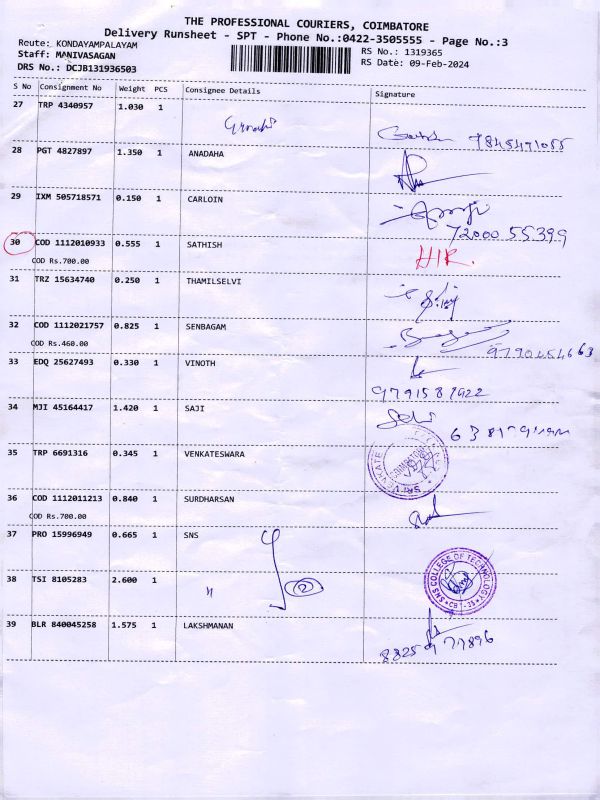 THE PROFESSIONAL COURIERS, COIMBATORE
Delivery Runsheet - SPT - Phone No.:0422-3505555 - Page No.:3
Route: KONDAYAMPALAYAM
Staff: MANIVASAGAN
DRS No.: DCJB131936503
RS No.: 1319365
RS Date: 09-Feb-2024
S No Consignment No Weight PCS Consignee Details Signature
27 TRP 4340957 1.030 1
28 PGT 4827897 1.350 1 ANADAHA
29 IXM 505718571 0.150 1 CARLOIN
72000 55399
30 COD 1112010933 0.555 1 SATHISH
COD Rs.700.00
31 TRZ 15634740 0.250 1 THAMILSELVI
32 COD 1112021757 0.825 1 SENBAGAM
COD Rs.460.00
33 EDQ 25627493 0.330 1 VINOTH
34 MJI 45164417 1.420 1 SAJI
35 TRP 6691316 0.345 1 VENKATESWARA
36 COD 1112011213 0.840 1 SURDHARSAN
COD Rs.700.00
37 PRO 15996949 0.665 1 SNS
38 TSI 8105283 2.600 1 " 2
SNS COLLEGE OF TECHNOLOGY
CBT-35
39 BLR 840045258 1.575 1 LAKSHMANAN